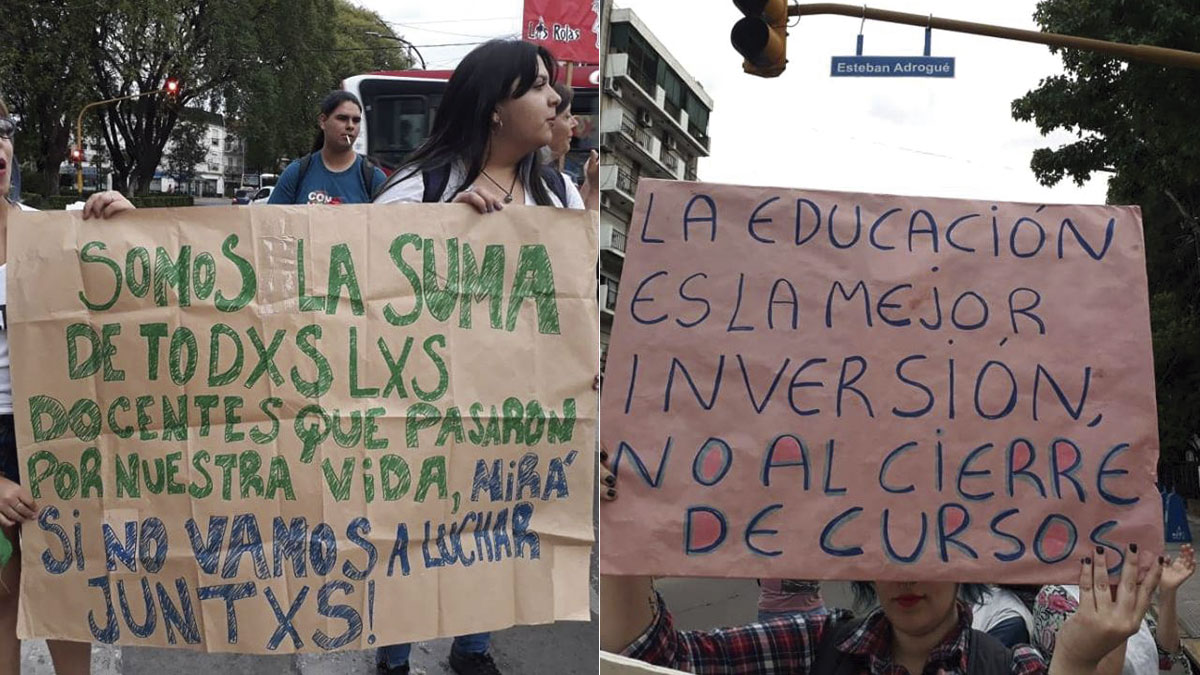 Los Rojas
SOMOS LA SUMA
DE TODXS LXS
DOCENTES QUE PASARON
POR NUESTRA VIDA, MIRÁ
SI NO VAMOS A LUCHAR
JUNTXS!
Esteban Adrogué
LA EDUCACIÓN
ES LA MEJOR
INVERSIÓN,
NO AL CIERRE
DE CURSOS